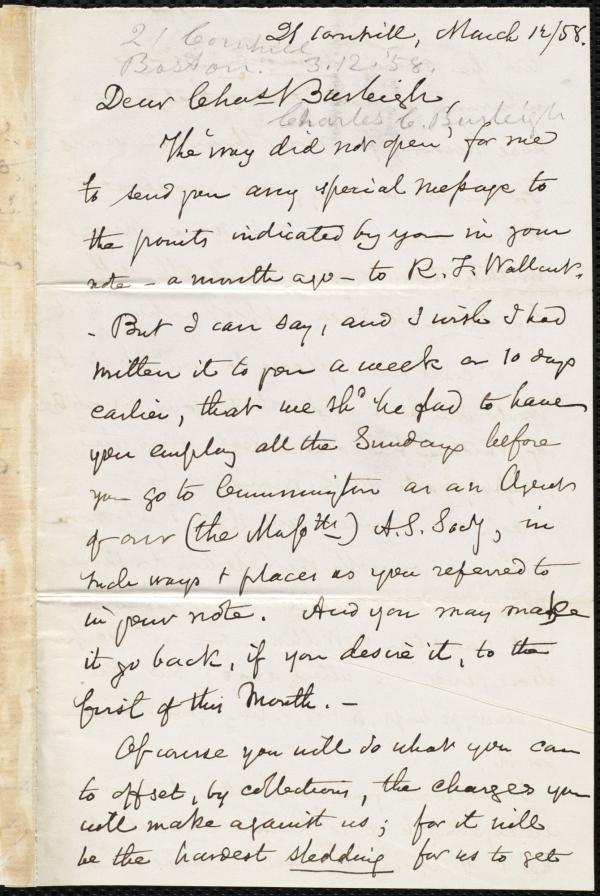 21 Cornhill, March 12/58.
21 Cornhill
Boston. 3.12.'58.
Dear Chas Burleigh,
Charles C. Burleigh
The 'way did not open' for me
to send you any special message to
the points indicated by you in your
note - a month ago - to R. F. Wallcut.
- But I can say, and I wish I had
written it to you a week or 10 days
earlier, that we shd be glad to have
you employ all the Sundays before
you go to Cummington as an Agent
of our (the Massctts) A.S. Socy, in
such ways & places as you referred to
in your note. And you may make
it go back, if you desire it, to the
first of this Month. -
Of course you will do what you can
to offset, by collections, the charges you
will make against us; for it will
be the hardest sledding for us to get